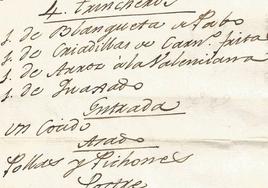 4. Trincheros
1. de Blanqueta de Pabo
1. de Criadillas de Carn.º frita
1. de Arroz à la Valenciana
1. de Guasado
Entrada
un Cocido
Asado
Pollas y Pichones
Postre